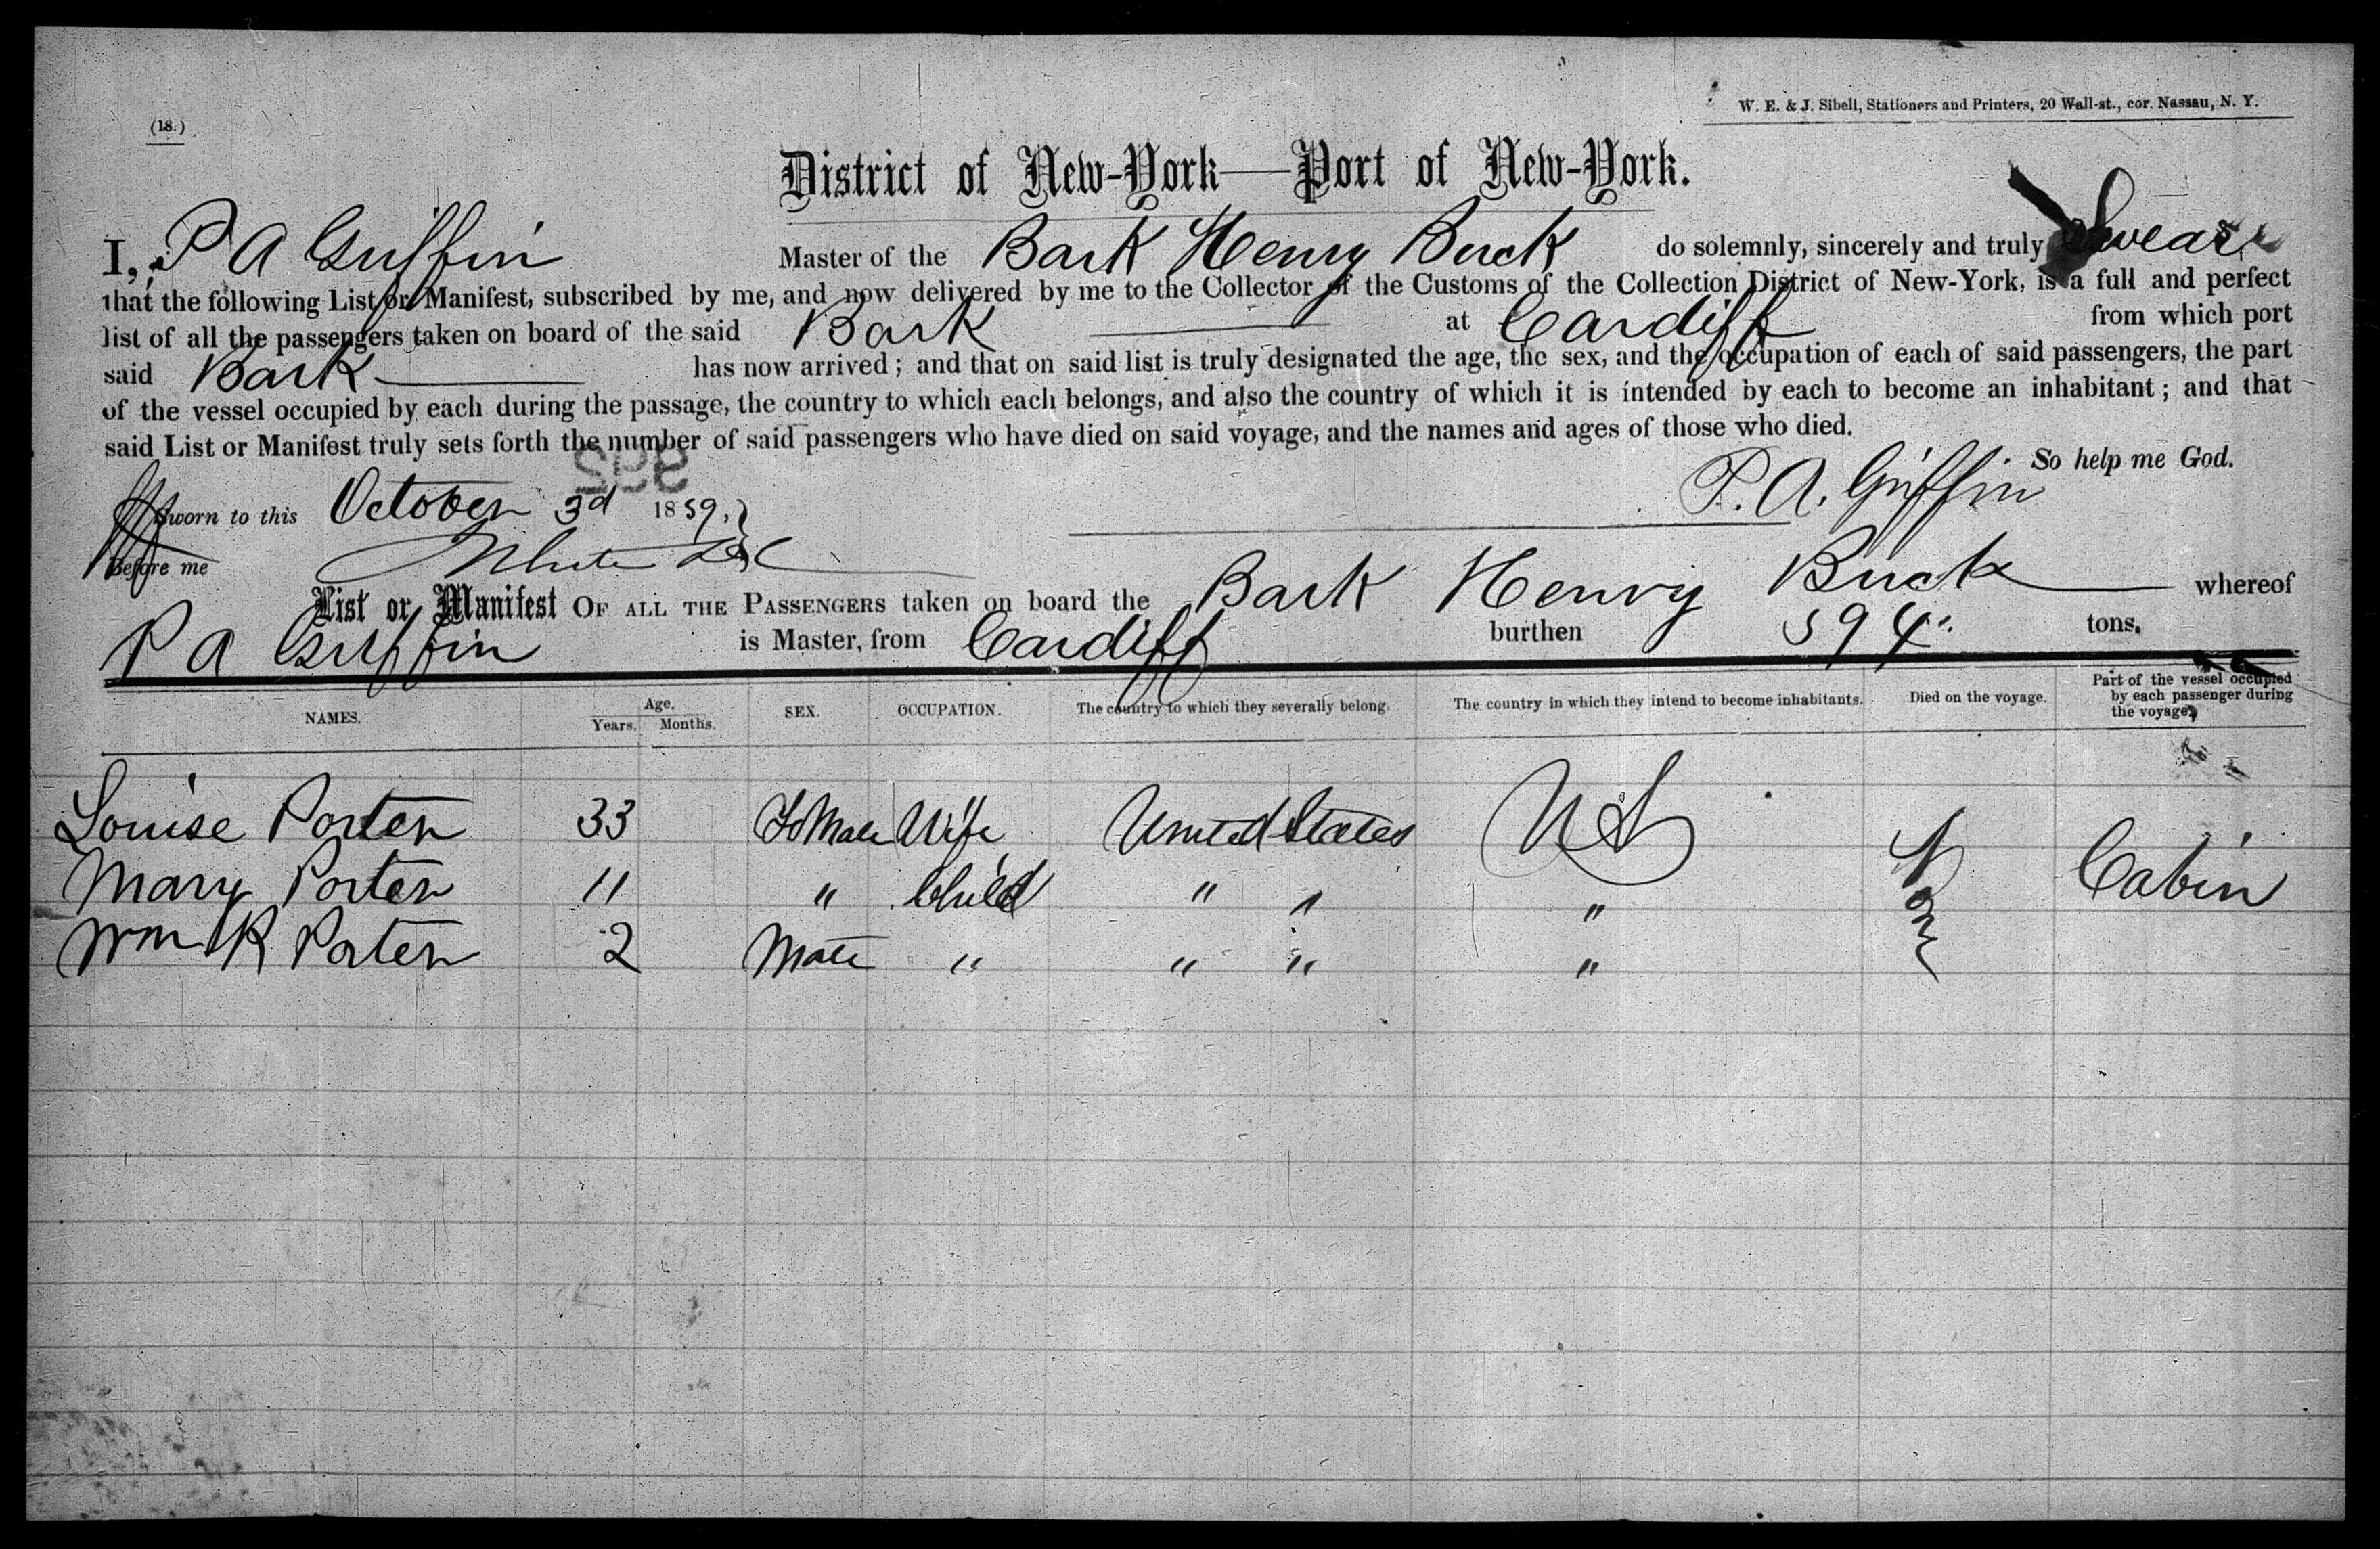 W. E. & J. Sibell, Stationers and Printers, 20 Wall-st., cor. Nassau, N. Y.
(18.)
District of New-York—Port of New-York.
I, P A Griffin Master of the Bark Henry Buck do solemnly, sincerely and truly Swear
that the following List or Manifest, subscribed by me, and now delivered by me to the Collector of the Customs of the Collection District of New-York, is a full and perfect
list of all the passengers taken on board of the said Bark at Cardiff from which port
said Bark has now arrived; and that on said list is truly designated the age, the sex, and the occupation of each of said passengers, the part
of the vessel occupied by each during the passage, the country to which each belongs, and also the country of which it is intended by each to become an inhabitant; and that
said List or Manifest truly sets forth the number of said passengers who have died on said voyage, and the names and ages of those who died.
So help me God.
P. A. Griffin
Sworn to this October 3d 1859.
Before me
List or Manifest OF ALL THE PASSENGERS taken on board the Bark Henry Buck whereof
P A Griffin is Master, from Cardiff burthen 594 tons.
NAMES. Age. Years. Months. SEX. OCCUPATION. The country to which they severally belong. The country in which they intend to become inhabitants. Died on the voyage. Part of the vessel occupied by each passenger during the voyage.
Louise Porter 33 FeMale Wife United States US None Cabin
Mary Porter 11 " Child " " "
Wm R Porter 2 Male " " " "